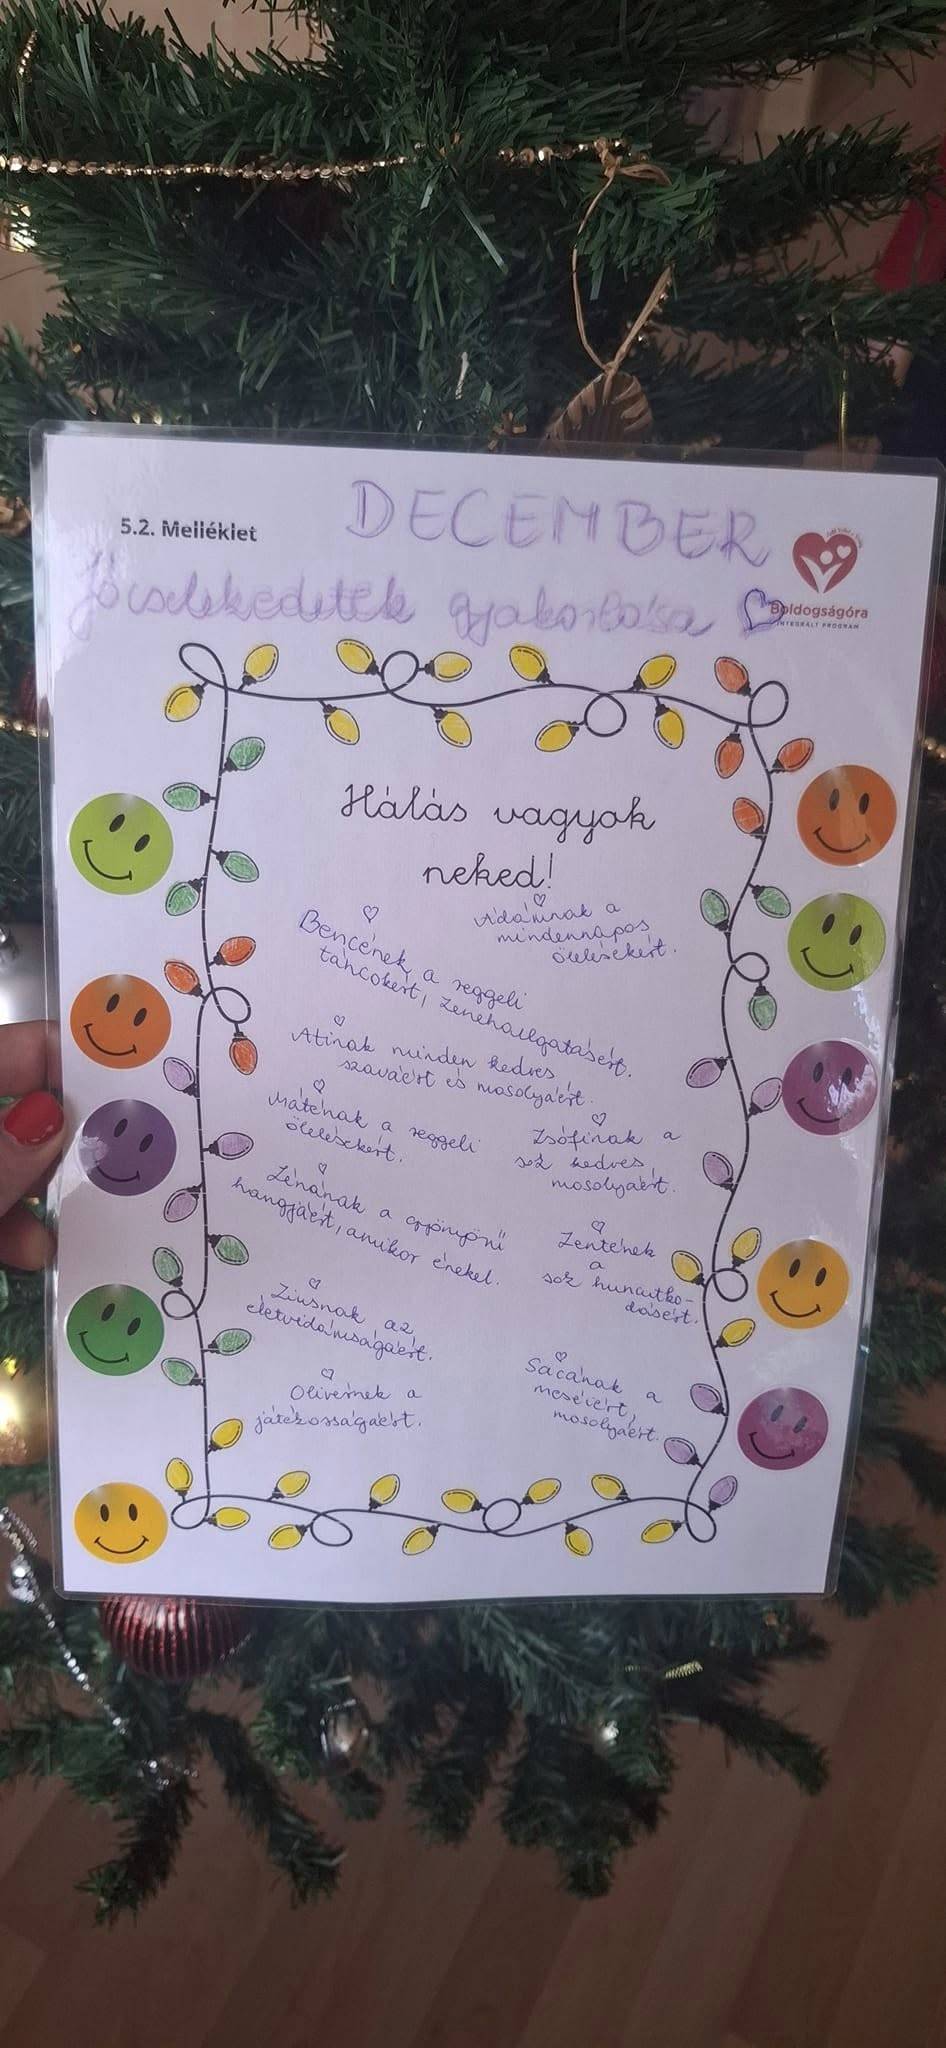 5.2. Melléklet
DECEMBER
Jócselekedetek gyakorlása
Boldogságóra
INTEGRÁLT PROGRAM
Hálás vagyok
neked!
Bencének a reggeli
táncokért, zenehallgatásért.
Ádámnak a
mindennapos
ölelésekért.
Atinak minden kedves
szaváért és mosolyáért.
Máténak a reggeli
ölelésekért.
Zsófinak a
sok kedves
mosolyáért.
Zénónak a gyönyörű
hangjáért, amikor énekel.
Zentének
a
sok huncutko-
dásért.
Ziusnak az
életvidámságáért.
Olivérnek a
játékosságáért.
Sacának a
meséiért,
mosolyáért.